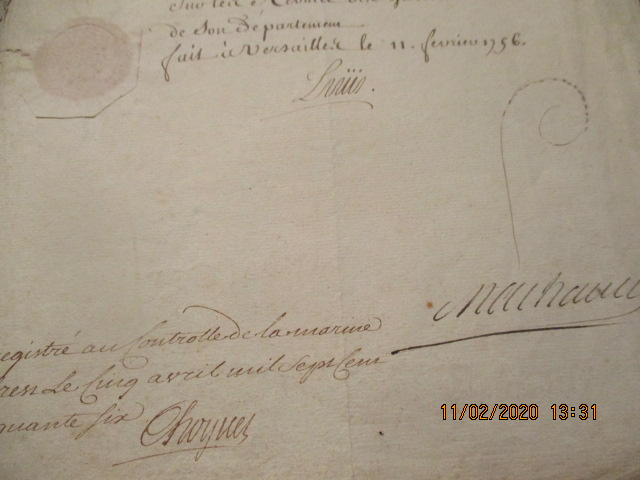 de Son Département
fait à Versailles le 11. fevrier 1756.
Loüis.
Machault
egistré au Controlle de la marine
Le Cinq avril mil Sept Cent
quante Six
Choquet
11/02/2020 13:31